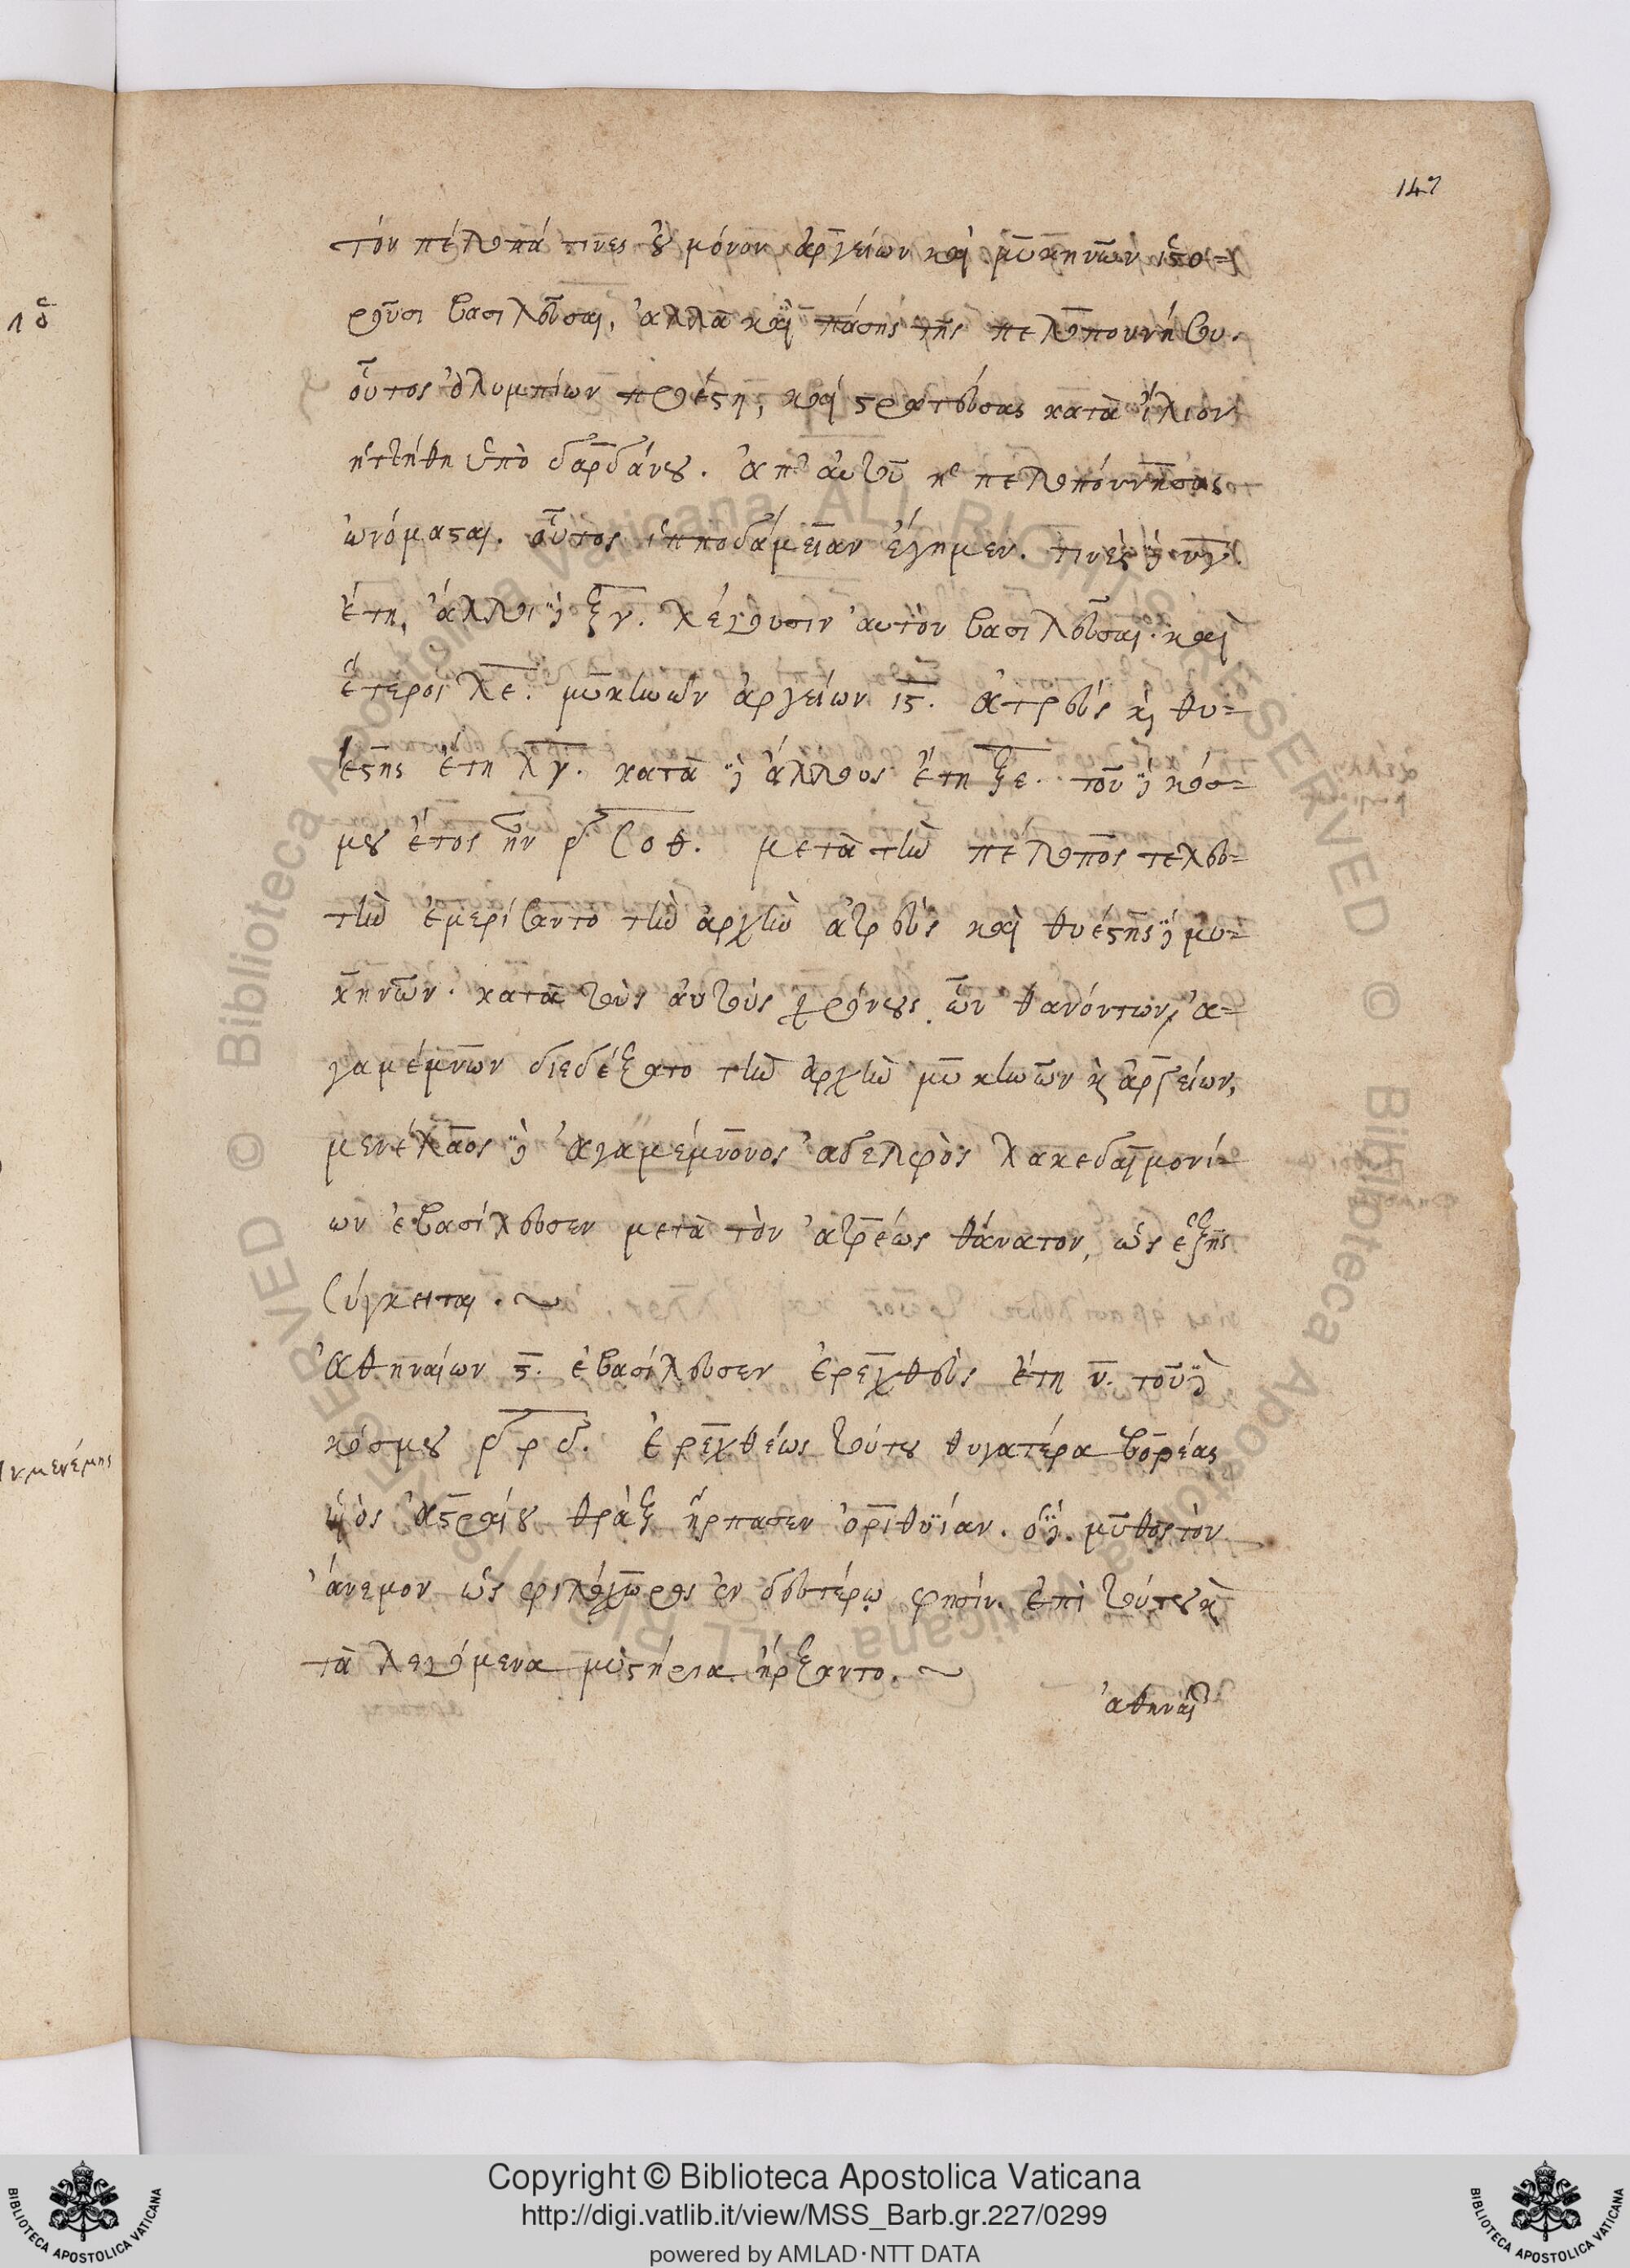 147
τὸν πέλοπά τινες οὐ μόνον ἀργείων καὶ μυκηνῶν ἱστο=
ροῦσι βασιλεῦσαι, ἀλλὰ καὶ πάσης τῆς πελοπονήσου.
οὗτος ὀλυμπίων προέστη, καὶ στρατεύσας κατὰ ἴλιον
ἡττήθη ὑπὸ δαρδάνου. ἀπ' αὐτοῦ ἡ πελοπόννησος
ὠνόμασται. οὗτος ἱπποδάμειαν ἔγημεν. τινὲς δὲ νγ.
ἔτη, ἄλλοι δὲ ξγ. λέγουσιν αὐτὸν βασιλεῦσαι. καὶ
ἕτεροι λε. μυκηνῶν ἀργείων ις. ἀτρεὺς καὶ θυ=
έστης ἔτη λγ. κατὰ δὲ ἄλλους ἔτη ξε. τοῦ δὲ κόσ=
μου ἔτος ἦν ͵δσοθ. μετὰ τὴν πέλοπος τελευ=
τὴν ἐμερίσαντο τὴν ἀρχὴν ἀτρεὺς καὶ θυέστης δὲ μυ=
κηνῶν. κατὰ τοὺς αὐτοὺς χρόνους. ὧν θανόντων, ἀ=
γαμέμνων διεδέξατο τὴν ἀρχὴν μυκηνῶν καὶ ἀργείων,
μενέλαος δὲ ἀγαμέμνονος ἀδελφὸς λακεδαιμονί=
ων ἐβασίλευσεν μετὰ τὸν ἀτρέως θάνατον, ὡς ἑξῆς
σύγκειται.
ἀθηναίων ς. ἐβασίλευσεν ἐρεχθεὺς ἔτη ν. τοῦ δὲ
κόσμου ͵δρδ. ἐρεχθέως τούτου θυγατέρα βορέας
υἱὸς ἀστραίου θρᾲξ ἥρπασεν ὀριθυίαν. ὁ δὲ μῦθος τὸν
ἄνεμον ὡς φιλόχωρος ἐν δευτέρῳ φησίν. ἐπὶ τούτου καὶ
τὰ λεγόμενα μυστήρια ἤρξαντο.
ἀθηναί
Copyright © Biblioteca Apostolica Vaticana
http://digi.vatlib.it/view/MSS_Barb.gr.227/0299
powered by AMLAD·NTT DATA
BIBLIOTECA APOSTOLICA VATICANA
BIBLIOTECA APOSTOLICA VATICANA